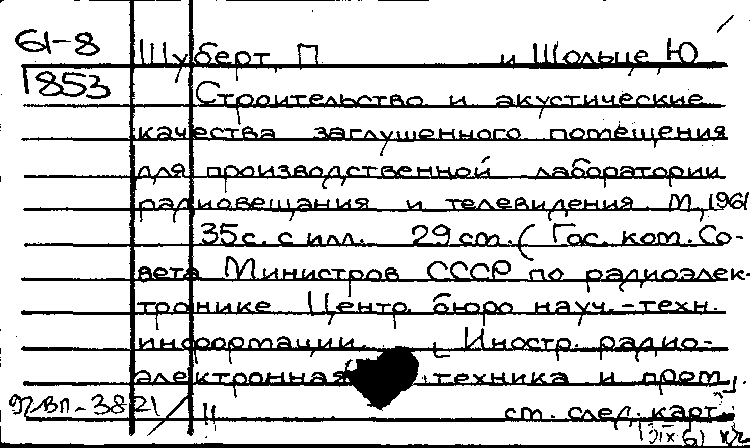 61-8 Шуберт, П. и Шольце, Ю.
1853 Строительство и акустические
качества заглушенного помещения
для производственной лаборатории
радиовещания и телевидения. М., 1961
35 с. с илл. 29 см. (Гос. ком. Со-
вета Министров СССР по радиоэлек-
тронике. Центр. бюро науч.-техн.
информации. Иностр. радио-
электронная техника и пром.).
38 21 11 см. след. карт.